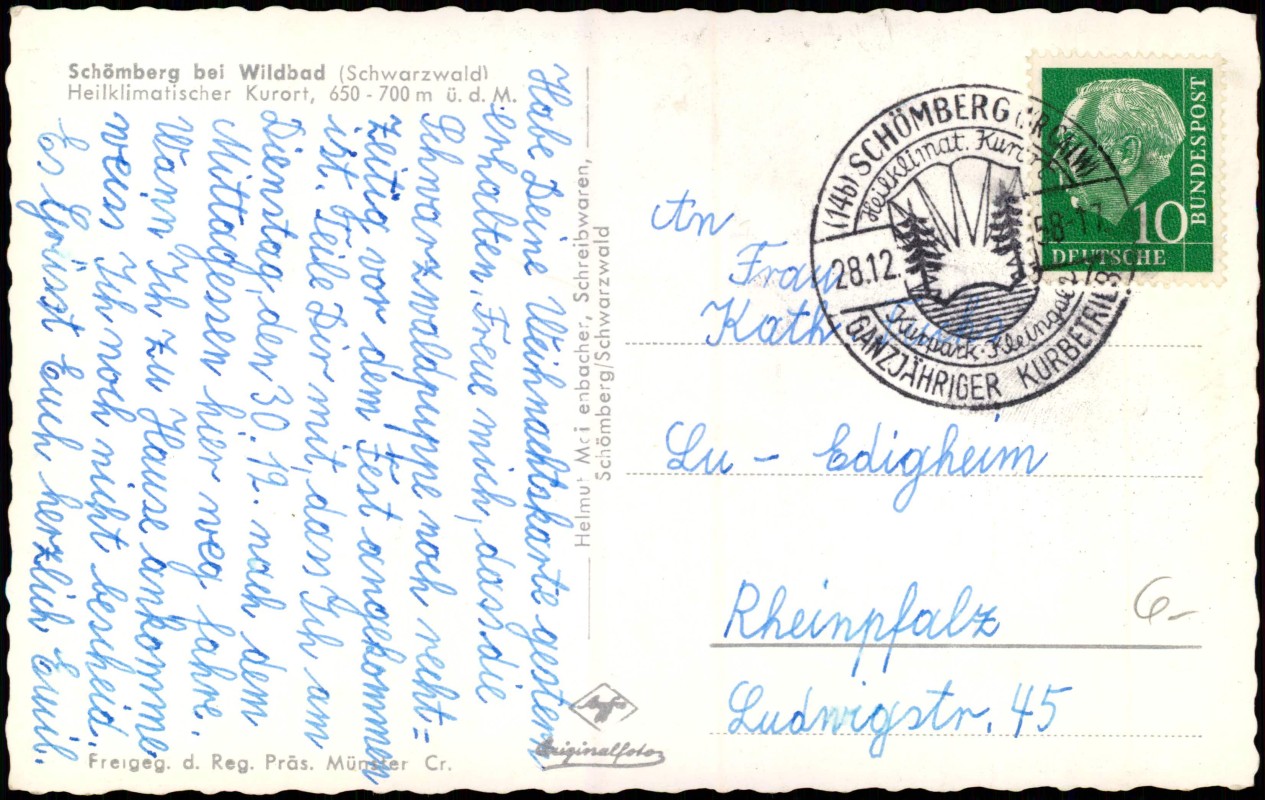 Schömberg bei Wildbad (Schwarzwald)
Heilklimatischer Kurort, 650 - 700 m ü. d. M.
Habe Deine Weihnachtskarte gestern
erhalten, Freue mich, dass die
Schwarzwaldpuppe noch recht=
zeitig vor dem Fest angekommen
ist. Teile Dir mit, dass Ich am
Dienstag, den 30.12. nach dem
Mittagessen hier weg fahre.
Wann Ich zu Hause ankomme
weiss Ich noch nicht bescheid.
Es Grüsst Euch herzlich Emil.
Freigeg. d. Reg. Präs. Münster Cr.
Helmut enbacher, Schreibwaren,
Schömberg/Schwarzwald
Agfa
Originalfoto
(14b) SCHÖMBERG (KR CALW)
Heilklimat. Kurort
28.12. 58-17
Kurpark
GANZJÄHRIGER KURBETRIEB
DEUTSCHE
BUNDESPOST
10
An
Frau
Kath
Lu - Edigheim
Rheinpfalz
Ludwigstr. 45
6-